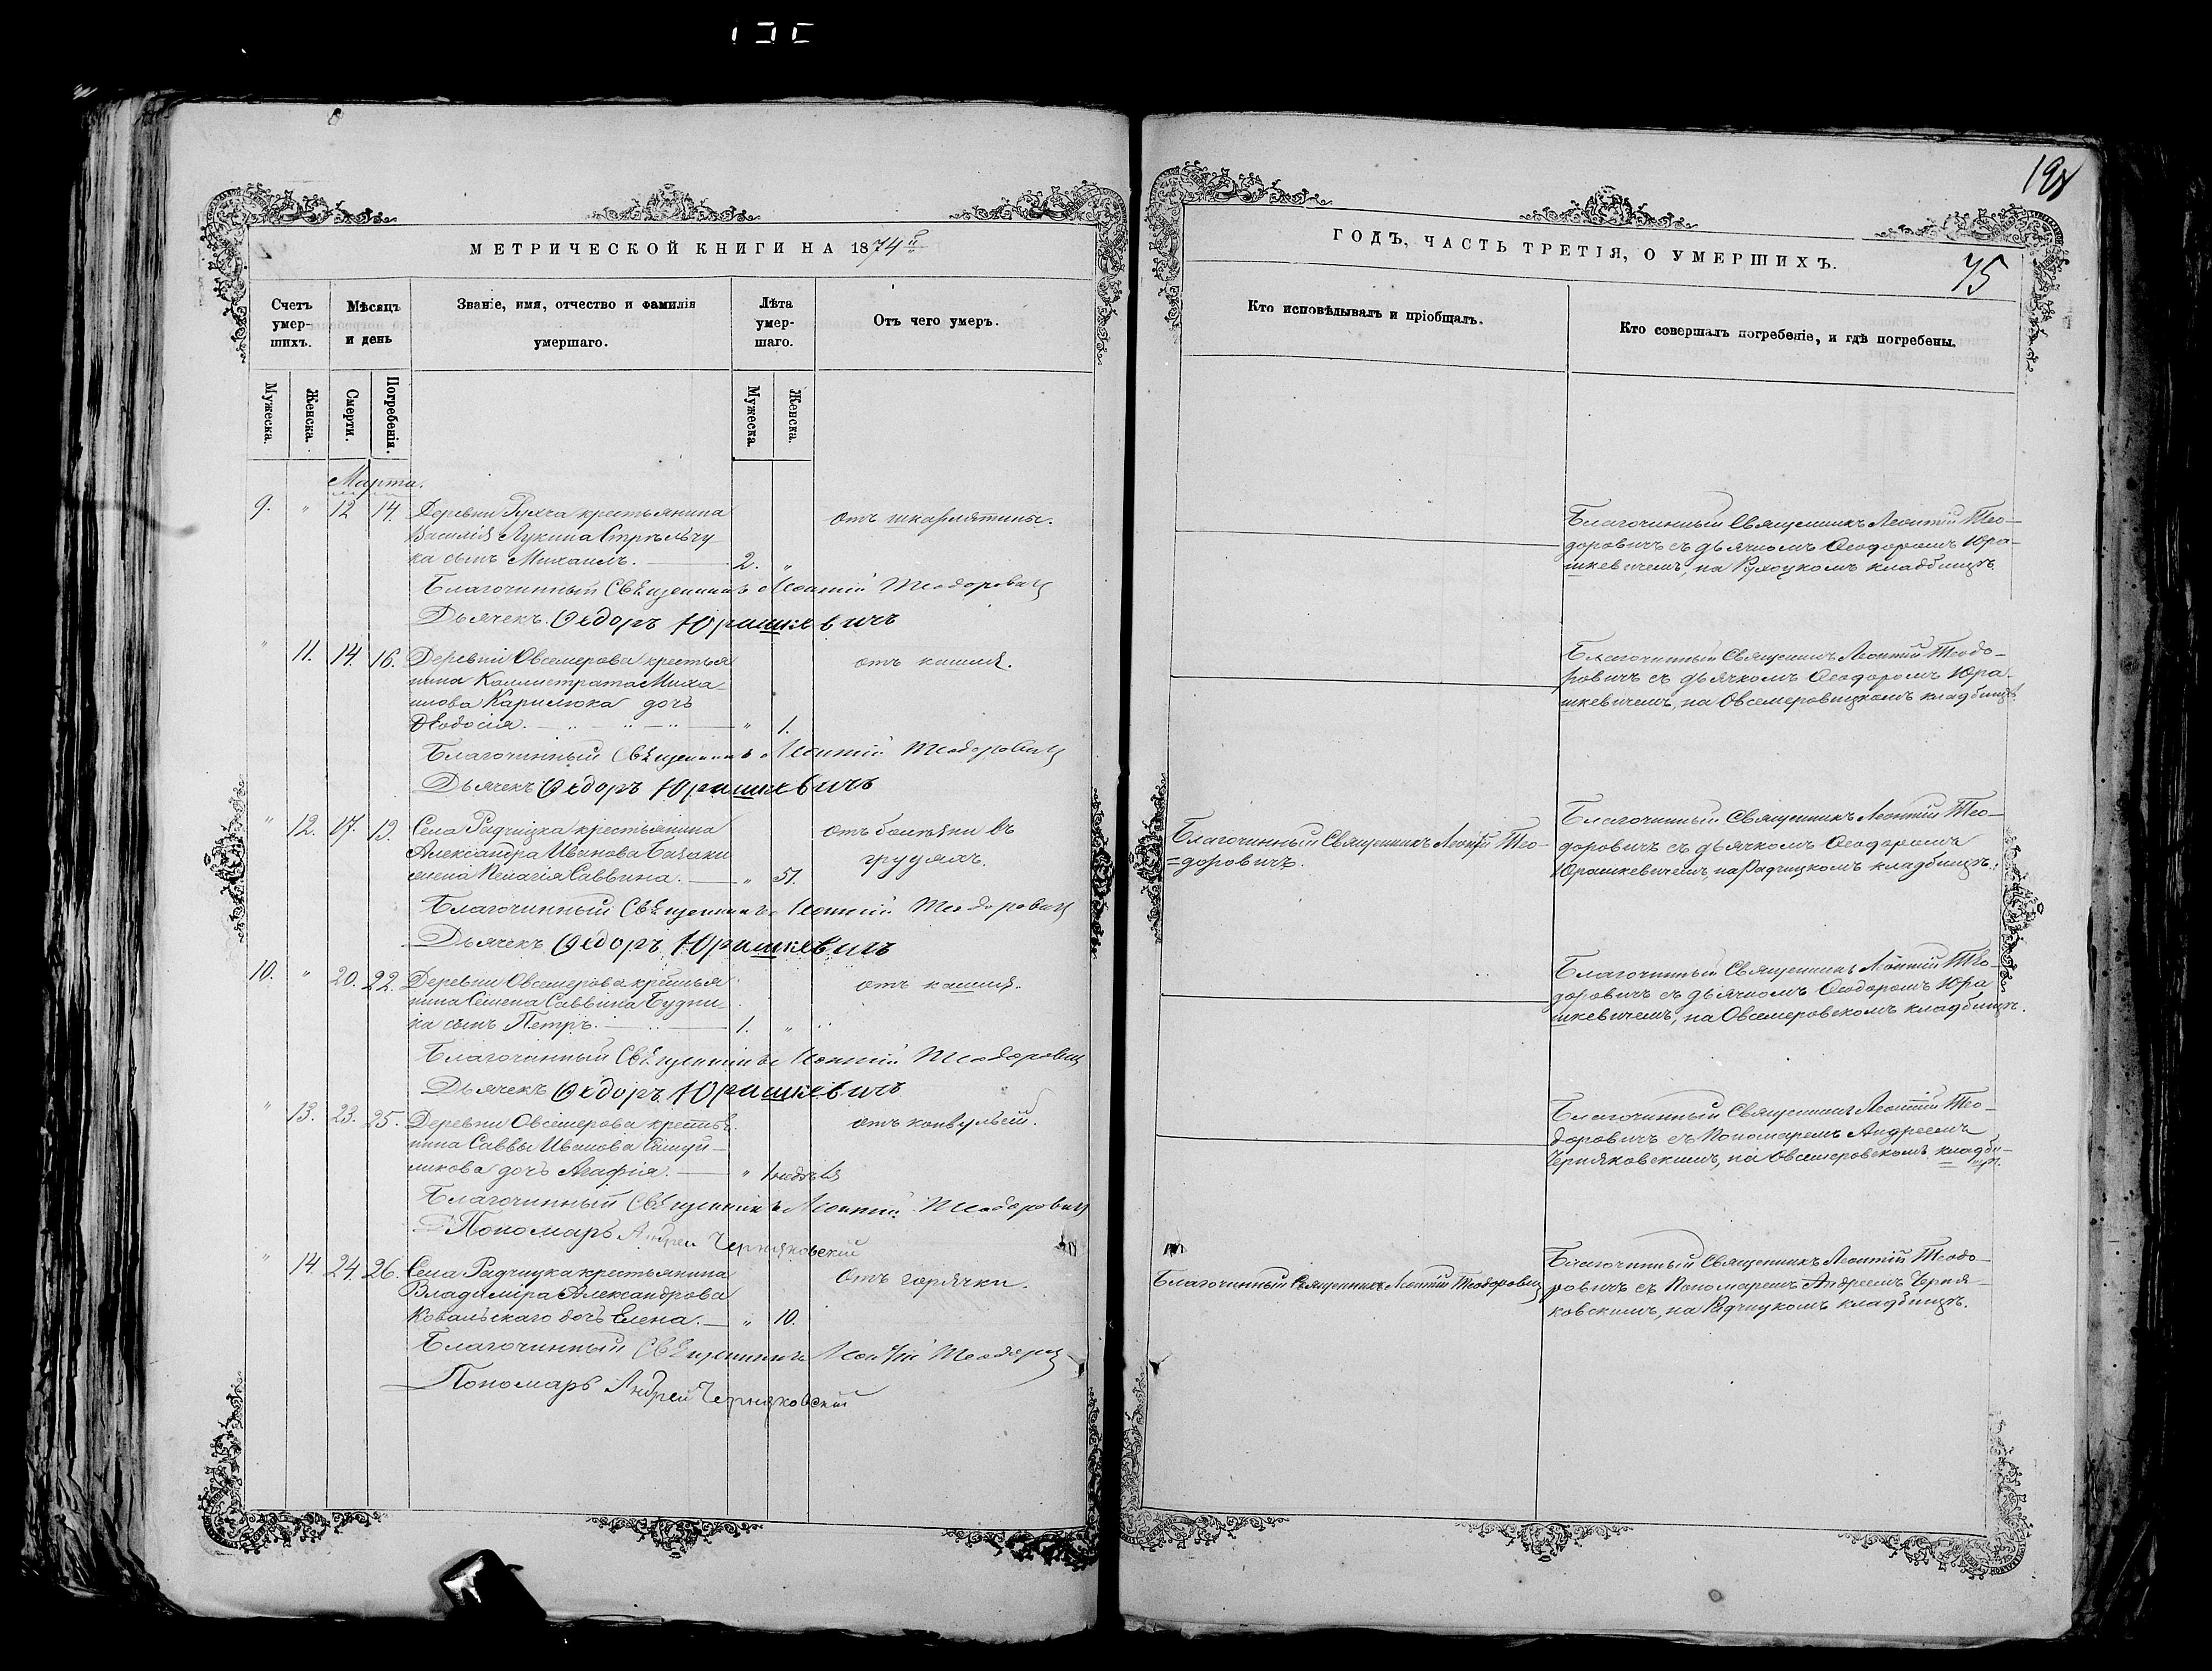 19
МЕТРИЧЕСКОЙ КНИГИ НА 1874й
Счетъ умер-шихъ.
Мѣсяцъ и день
Званіе, имя, отчество и фамилія умершаго.
Лѣта умер-шаго.
Отъ чего умеръ.
Мужеска.
Женска.
Смерти.
Погребенія.
Мужеска.
Женска.
Марта.
9. " 12 14. Деревни Рухча крестьянина отъ шкарлятины.
Василія Лукина Стрѣльчу-
ка сынъ Михаилъ. 2. "
Благочинный Священникъ Леонтій Теодоровичъ
Дьячекъ Ѳедоръ Юрашкевичъ
" 11. 14. 16. Деревни Овсемерова крестья- отъ кашля.
нина Каллистрата Миха-
илова Карилюка дочь
Ѳеодосія. " 1.
Благочинный Священникъ Леонтій Теодоровичъ
Дьячекъ Ѳедоръ Юрашкевичъ
" 12. 17. 19. Села Радчицка крестьянина отъ болѣзни въ
Александра Иванова грудяхъ.
жена Пелагія Саввина. " 51.
Благочинный Священникъ Леонтій Теодоровичъ
Дьячекъ Ѳедоръ Юрашкевичъ
10. " 20. 22. Деревни Овсемерова крестья- отъ кашля.
нина Семена Саввина Будни-
ка сынъ Петръ. 1. "
Благочинный Священникъ Леонтій Теодоровичъ
Дьячекъ Ѳедоръ Юрашкевичъ
" 13. 23. 25. Деревни Овсемерова крестья- отъ конвульсій.
нина Саввы Иванова
дочь Агафія. " 1 недѣля
Благочинный Священникъ Леонтій Теодоровичъ
Пономарь Андрей Черняковскій
" 14. 24. 26. Села Радчицка крестьянина Отъ горячки.
Владиміра Александрова
Ковальскаго дочь Елена. " 10.
Благочинный Священникъ Леонтій
Пономарь Андрей Черняковскій
ГОДЪ, ЧАСТЬ ТРЕТІЯ, О УМЕРШИХЪ.
75
Кто исповѣдывалъ и пріобщалъ.
Кто совершалъ погребеніе, и гдѣ погребены.
Благочинный Священникъ Леонтій Тео-
доровичъ съ дьячкомъ Ѳеодоромъ Юра-
шкевичемъ, на Рухоцкомъ кладбищѣ.
Благочинный Священникъ Леонтій Теодо-
ровичъ съ дьячкомъ Ѳеодоромъ Юра-
шкевичемъ, на Овсемеровицкомъ кладбищѣ.
Благочинный Священникъ Леонтій Тео-
=доровичъ.
Благочинный Священникъ Леонтій Тео-
доровичъ съ дьячкомъ Ѳеодоромъ
Юрашкевичемъ, на Радчицкомъ кладбищѣ.
Благочинный Священникъ Леонтій Тео-
доровичъ съ дьячкомъ Ѳеодоромъ Юра
шкевичемъ, на Овсемеровскомъ кладбищѣ.
Благочинный Священникъ Леонтій Тео-
доровичъ съ Пономаремъ Андреемъ
Черняковскимъ, на Овсемеровскомъ кладби-
щѣ.
Благочинный Священникъ Леонтій Теодоровичъ
Благочинный Священникъ Леонтій Теодо-
ровичъ съ Пономаремъ Андреемъ Черня-
ковскимъ, на Радчицкомъ кладбищѣ.